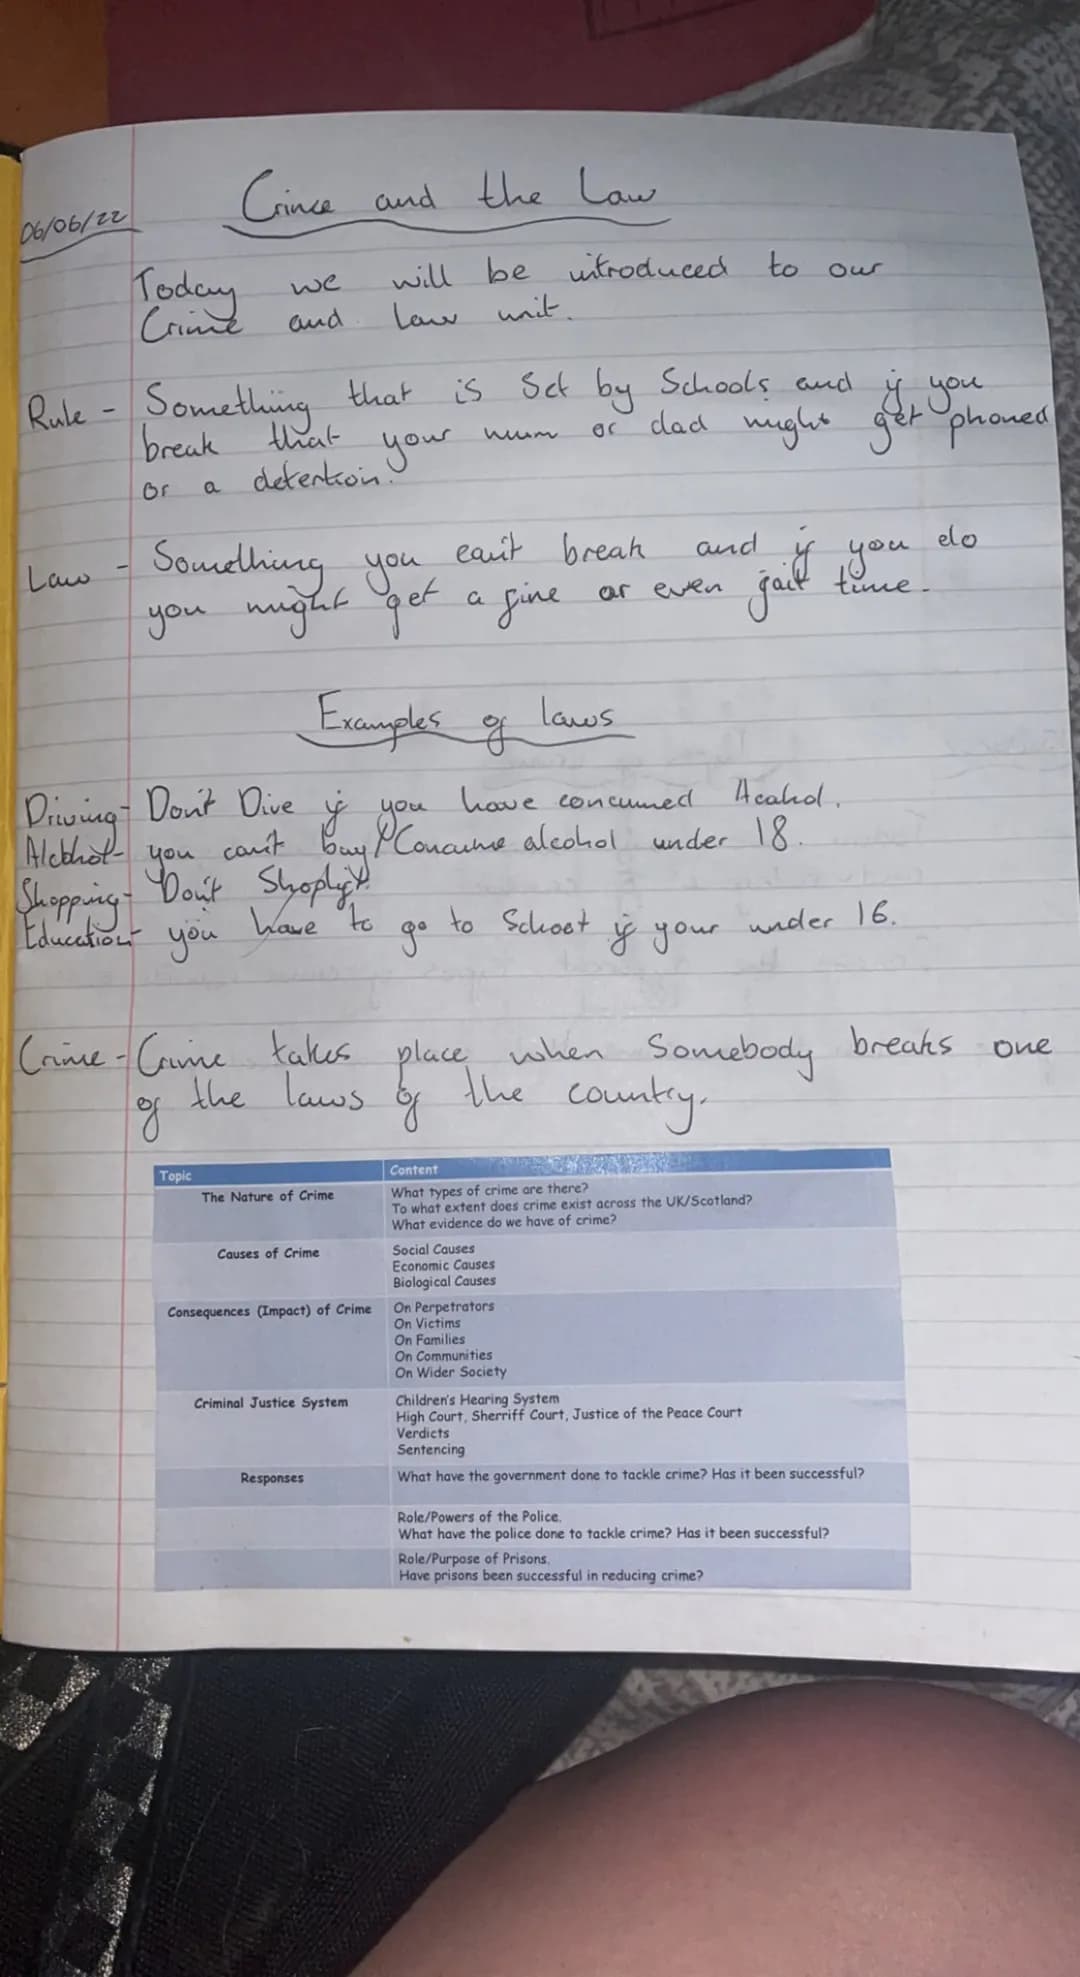 06/06/22
Crime and the Law
Today we will be introduced to our
Crime and Law unit.
Rule - Something that is Set by Schools and if you
break that your mum or dad might get phoned
or a detention.
Law - Something you can't break and if you do
you might get a fine or even jail time.
Examples of laws
Driving- Don't Dive if you have concumed Acahol.
Alcohol- you can't buy/Concume alcohol under 18.
Shopping- Don't Shoplift.
Education- you have to go to School if your under 16.
Crime - Crime takes place when Somebody breaks one
of the laws of the country.
Topic Content
The Nature of Crime What types of crime are there?
To what extent does crime exist across the UK/Scotland?
What evidence do we have of crime?
Causes of Crime Social Causes
Economic Causes
Biological Causes
Consequences (Impact) of Crime On Perpetrators
On Victims
On Families
On Communities
On Wider Society
Criminal Justice System Children's Hearing System
High Court, Sherriff Court, Justice of the Peace Court
Verdicts
Sentencing
Responses What have the government done to tackle crime? Has it been successful?
Role/Powers of the Police.
What have the police done to tackle crime? Has it been successful?
Role/Purpose of Prisons.
Have prisons been successful in reducing crime?